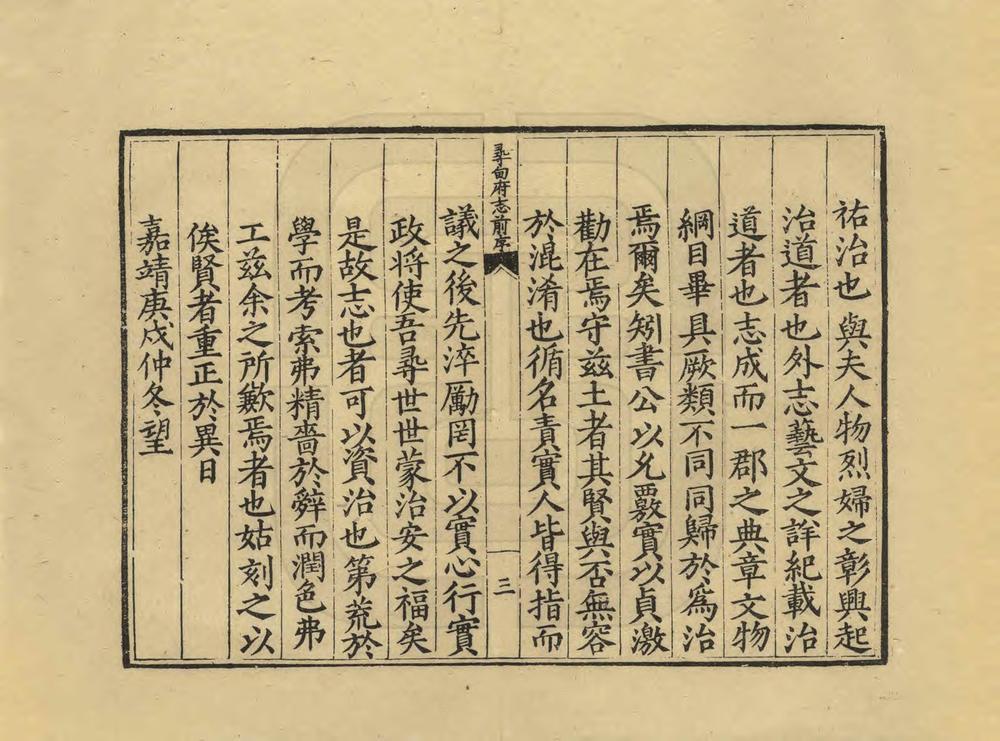 祐治也與夫人物烈婦之彰興起
治道者也外志藝文之詳紀載治
道者也志成而一郡之典章文物
綱目畢具厥類不同同歸於爲治
焉爾矣矧書公以允覈實以貞激
勸在焉守茲土者其賢與否無容
於混淆也循名責實人皆得指而
尋甸府志前序
三
議之後先淬勵罔不以實心行實
政将使吾尋世世蒙治安之福矣
是故志也者可以資治也第荒於
學而考索弗精嗇於辭而潤色弗
工茲余之所歉焉者也姑刻之以
俟賢者重正於異日
嘉靖庚戍仲冬望